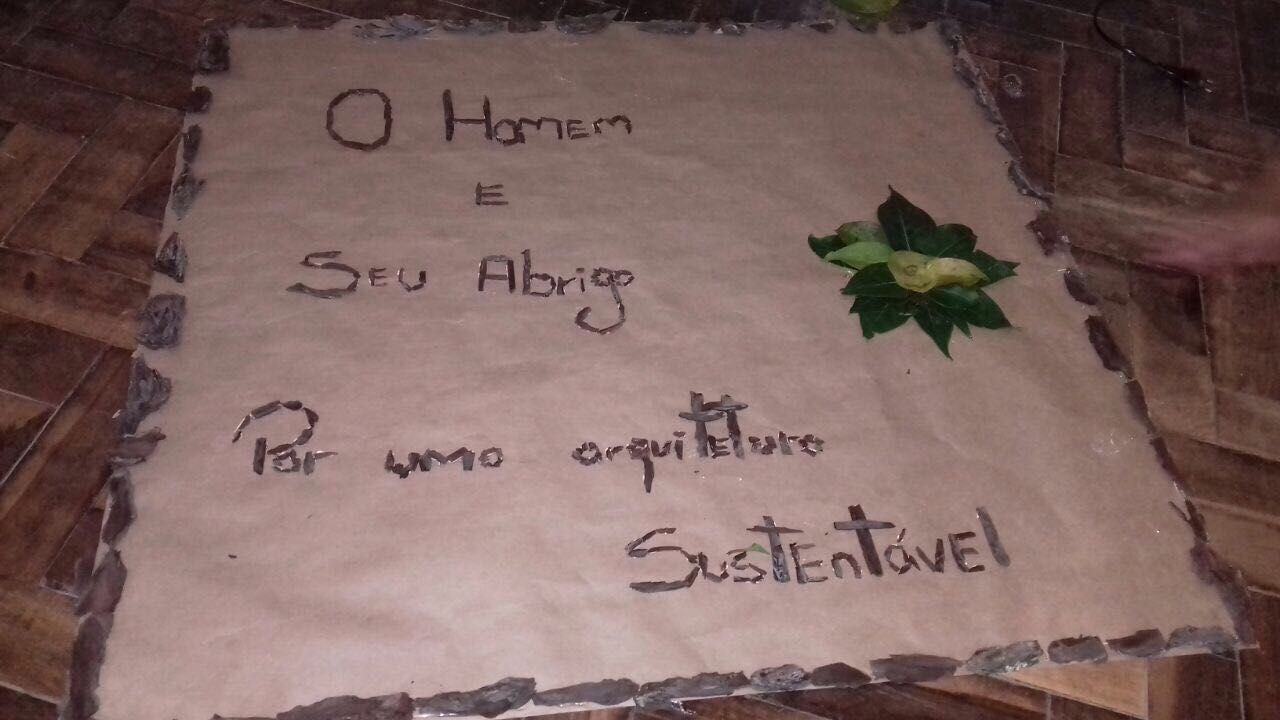 O Homem
E
Seu Abrigo
Por uma arquitTetura
SustEntável